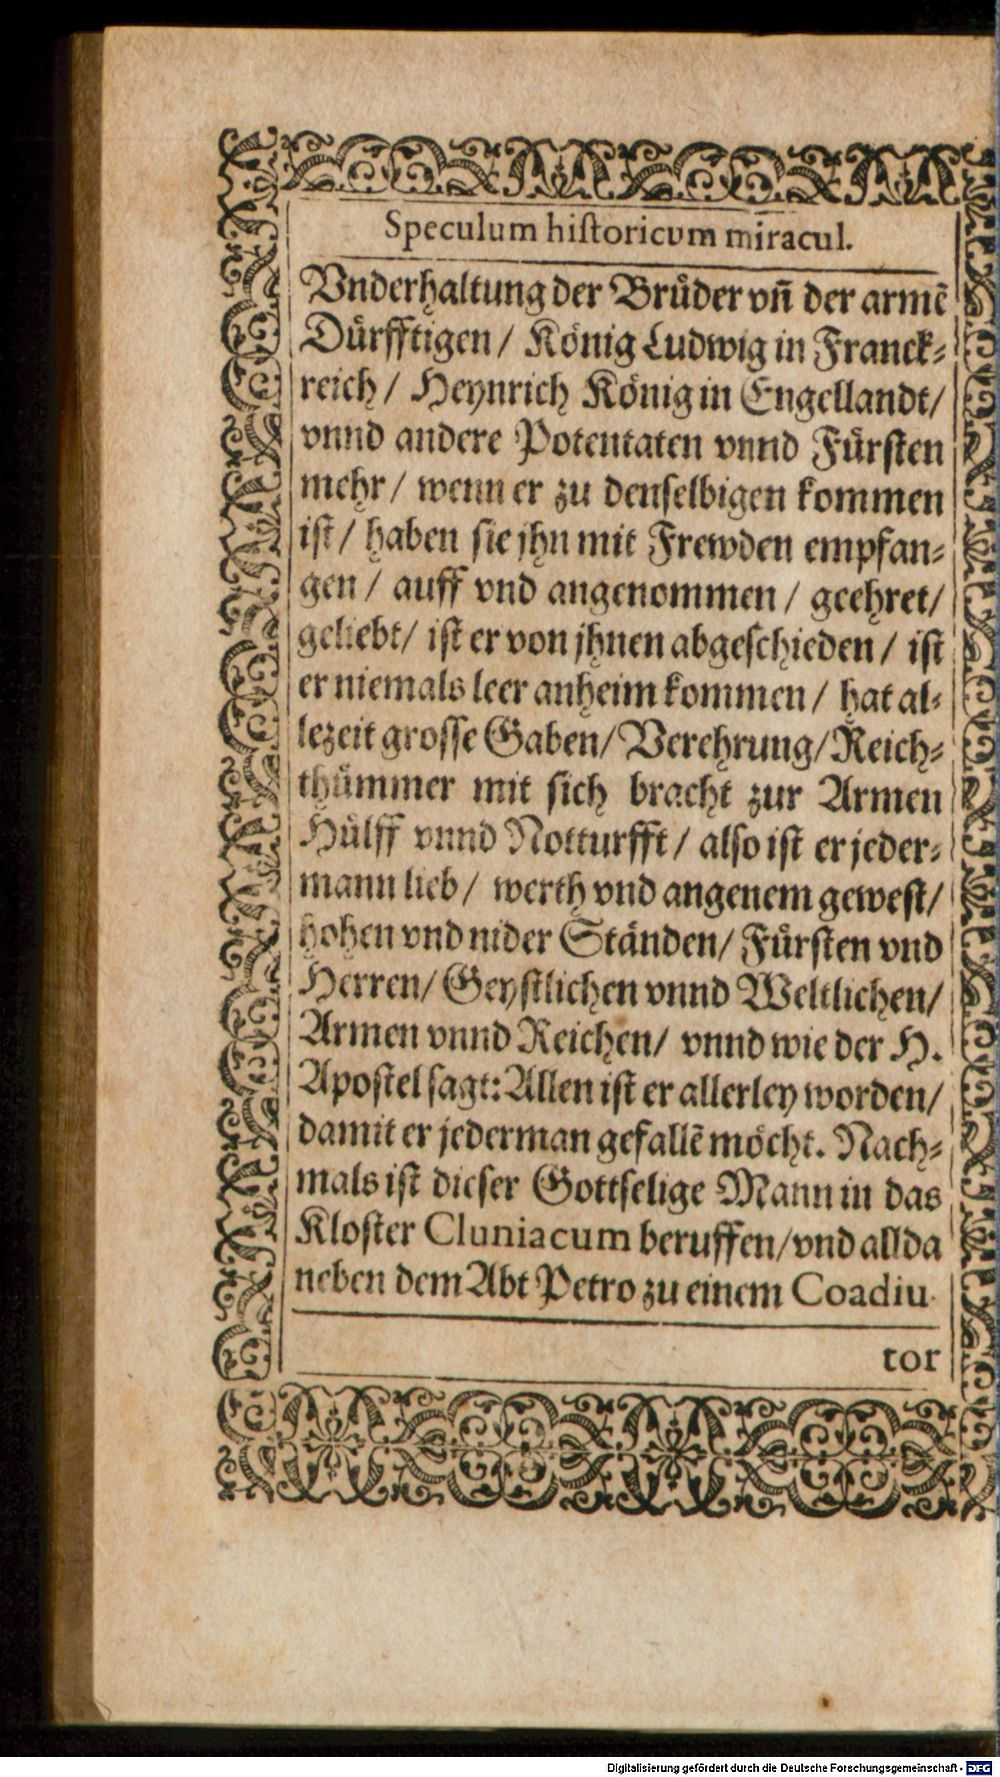 Speculum hiſtoricvm miracul.
Vnderhaltung der Brüder vñ der armẽ
Dürfftigen / König Ludwig in Franck⸗
reich / Heynrich König in Engellandt /
vnnd andere Potentaten vnnd Fürsten
mehr / wenn er zu denselbigen kommen
ist / haben sie jhn mit Frewden empfan⸗
gen / auff vnd angenommen / geehret /
geliebt / ist er von jhnen abgeschieden / ist
er niemals leer anheim kommen / hat al⸗
lezeit grosse Gaben / Verehrung / Reich⸗
thümmer mit sich bracht zur Armen
Hülff vnnd Notturfft / also ist er jeder⸗
mann lieb / werth vnd angenem gewest /
hohen vnd nider Ständen / Fürsten vnd
Herren / Geystlichen vnnd Weltlichen /
Armen vnnd Reichen / vnnd wie der H.
Apostel sagt: Allen ist er allerley worden /
damit er jederman gefallẽ möcht. Nach⸗
mals ist dieser Gottselige Mann in das
Kloster Cluniacum beruffen / vnd allda
neben dem Abt Petro zu einem Coadiu-
tor
Digitalisierung gefördert durch die Deutsche Forschungsgemeinschaft - DFG